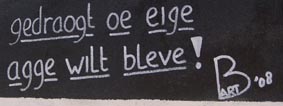 gedraogt oe eige
agge wilt bleve!
BART '08